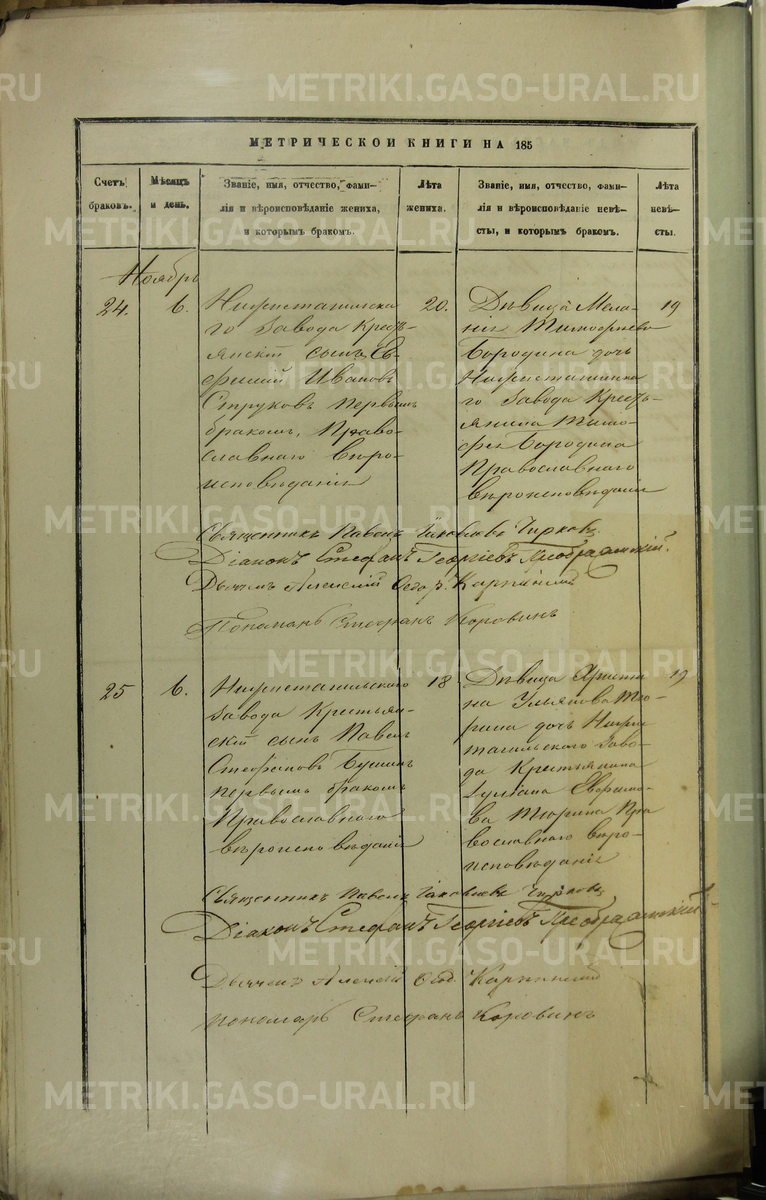 МЕТРИЧЕСКОЙ КНИГИ НА 185
Счетъ браковъ.
Мѣсяцъ и день.
Званіе, имя, отчество, фами-
лія и вѣроисповѣданіе жениха,
и которымъ бракомъ.
Лѣта жениха.
Званіе, имя, отчество, фами-
лія и вѣроисповѣданіе невѣ-
сты, и которымъ бракомъ.
Лѣта невѣ-
сты.
Ноябрь
24.
6.
Нижнетагильска
го Завода Кресть-
янскій сынъ Ев-
фимій Ивановъ
Струковъ первымъ
бракомъ, Право-
славнаго вѣро-
исповѣданія
20.
Дѣвица Мела-
нія Тимофѣева
Бородина дочь
Нижнетагильска
го Завода Кресть-
янина Тимо-
фея Бородина
Православнаго
вѣроисповѣданія
19
Священникъ Павелъ Іаковлевъ Чирковъ
Діаконъ Стефанъ Георгіевъ Преображенскій.
Дьячекъ Алексій Ѳедор. Карпинскій
Пономарь Стефанъ Коровинъ
25
6.
Нижнетагильского
Завода Крестьян-
скій сынъ Павелъ
Стефановъ
первымъ бракомъ
Православнаго
вѣроисповѣданія
18
Дѣвица Христи
на Ульянова Тю-
рина дочь Нижне
тагильскаго Заво-
да Крестьянина
Тюрина Пра
вославнаго вѣро-
исповѣданія
19
Священникъ Павелъ Іаковлевъ Чирковъ
Діаконъ Стефанъ Георгіевъ Преображенскій
Дьячекъ Алексій Ѳеод. Карпинскій
пономарь Стефанъ Коровинъ
METRIKI.GASO-URAL.RU